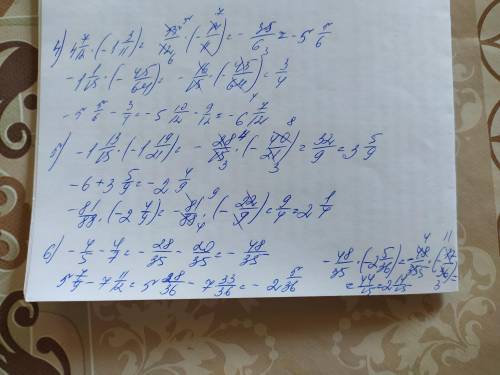 4) 4 7/12 · (-1 3/11) = 55/12 · (-14/11) = -35/6 = -5 5/6
-1 1/15 · (-45/64) = -16/15 · (-45/64) = 3/4
-5 5/6 - 3/4 = -5 10/12 - 9/12 = -6 7/12
5) -1 13/15 · (-1 19/21) = -28/15 · (-40/21) = 32/9 = 3 5/9
-6 + 3 5/9 = -2 4/9
-81/88 · (-2 4/9) = -81/88 · (-22/9) = 9/4 = 2 1/4
6) -4/5 - 4/7 = -28/35 - 20/35 = -48/35
5 7/9 - 7 11/12 = 5 28/36 - 7 33/36 = -2 5/36
-48/35 · (-2 5/36) = -48/35 · (-77/36) =
= 44/15 = 2 14/15